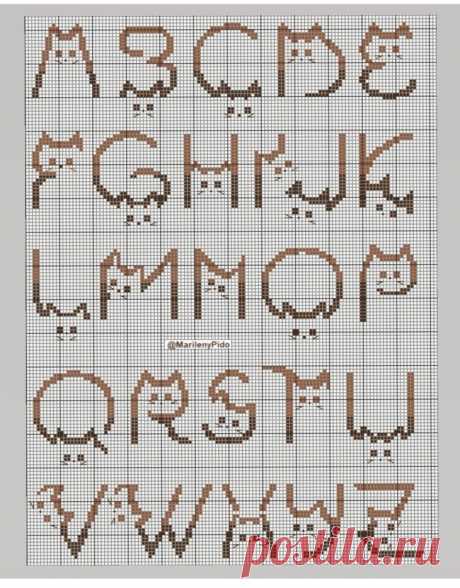 A B C D E
F G H I J K
L M N O P
@MarilenyPido
Q R S T U
V W X Y Z
postila.ru